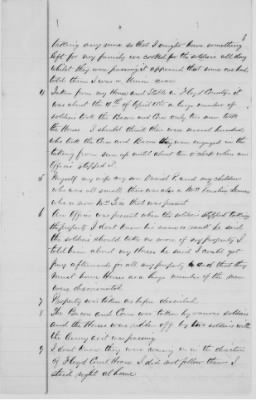 taking any more so that I might have something
left for my family we cooked for the soldiers all day
whilst they were passing it appeared that some one had
told them I was a Union man
4 Taken from my House and Stable in Floyd County it
was about the of April 1865 a large number of
soldiers took the Bacon and Corn only two men took
the Horse I should think there were several hundred
who took the Corn and Bacon they were engaged in the
taking from sun up until about ten o'clock when an
Officer stopped it
5 Myself my wife my son Daniel P. and my children
who was all small there was also a Mrs
who is now Mrs that was present
6 One Officer was present when the soldiers stopped taking
the property I dont know his name or rank he said
the soldiers should take no more of my property I
told him about my Horse he said I could get
pay afterwards for all my property and that they
must have Horses as a large number of the men
were dismounted
7 Property was taken as before described
8 The Bacon and Corn was taken by various soldiers
and the Horse was ridden off by two soldiers with
the Army as it was passing
9 I dont know they were moving on in the direction
of Floyd Court House I did not follow them I
staid right at home